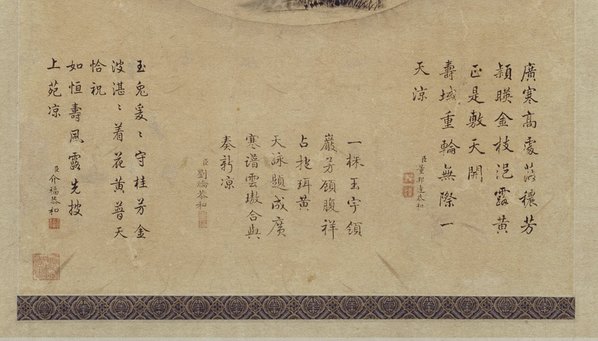 廣寒高處茁穠芳
頴暎金枝浥露黃
正是敷天開
壽域重輪無際一
天涼
臣董邦達恭和
一株玉宇領
巖芳頷腹祥
占挹珥黃
天詠題成廣
寒譜雲璈合與
奏新凉
臣劉綸恭和
玉兔爰〻守桂芳金
波湛〻着花黃普天
恰祝
如恒壽風露先披
上苑凉
臣介福恭和